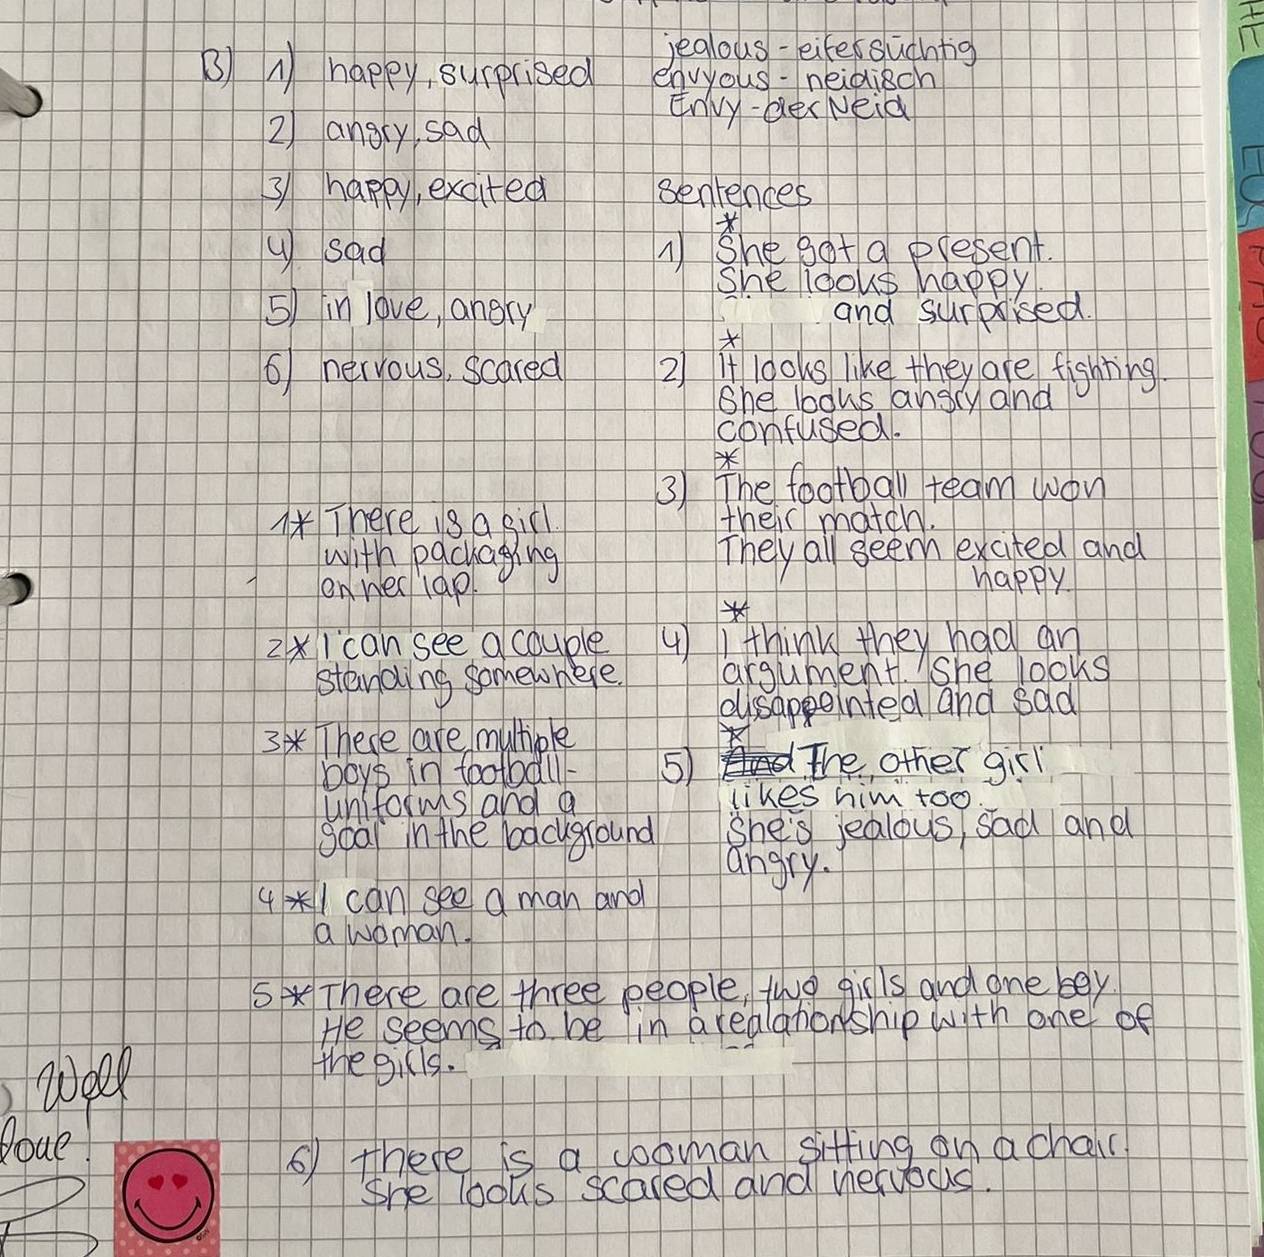 B) 1) happy, surprised
2) angry, sad
3) happy, excited
4) sad
5) in love, angry
6) nervous, scared
jealous - eifersüchtig
envyous - neidisch
Envy - der Neid
sentences
*
1) She got a present.
She looks happy.
and surprised.
*
2) It looks like they are fighting.
She looks angry and
confused.
*
3) The football team won
their match.
They all seem excited and
happy.
*
4) I think they had an
argument. She looks
disappointed and sad
*
5) And The other girl
likes him too.
She's jealous, sad and
angry.
1* There is a girl
with packaging
on her lap.
2* I can see a couple
standing somewhere.
3* There are multiple
boys in football-
uniforms and a
goal in the background
4* I can see a man and
a woman.
5* There are three people, two girls and one boy.
He seems to be in a realationship with one of
the girls.
6) there is a wooman sitting on a chair.
She looks scared and nervous.
Well